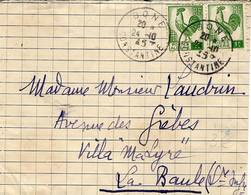 BÔNE
20 24-10 45
CONSTANTINE
BÔNE
CONSTANTINE
Madame Monsieur Vaudrin
Avenue des Grèbes
Villa "Malgré"
La Baule